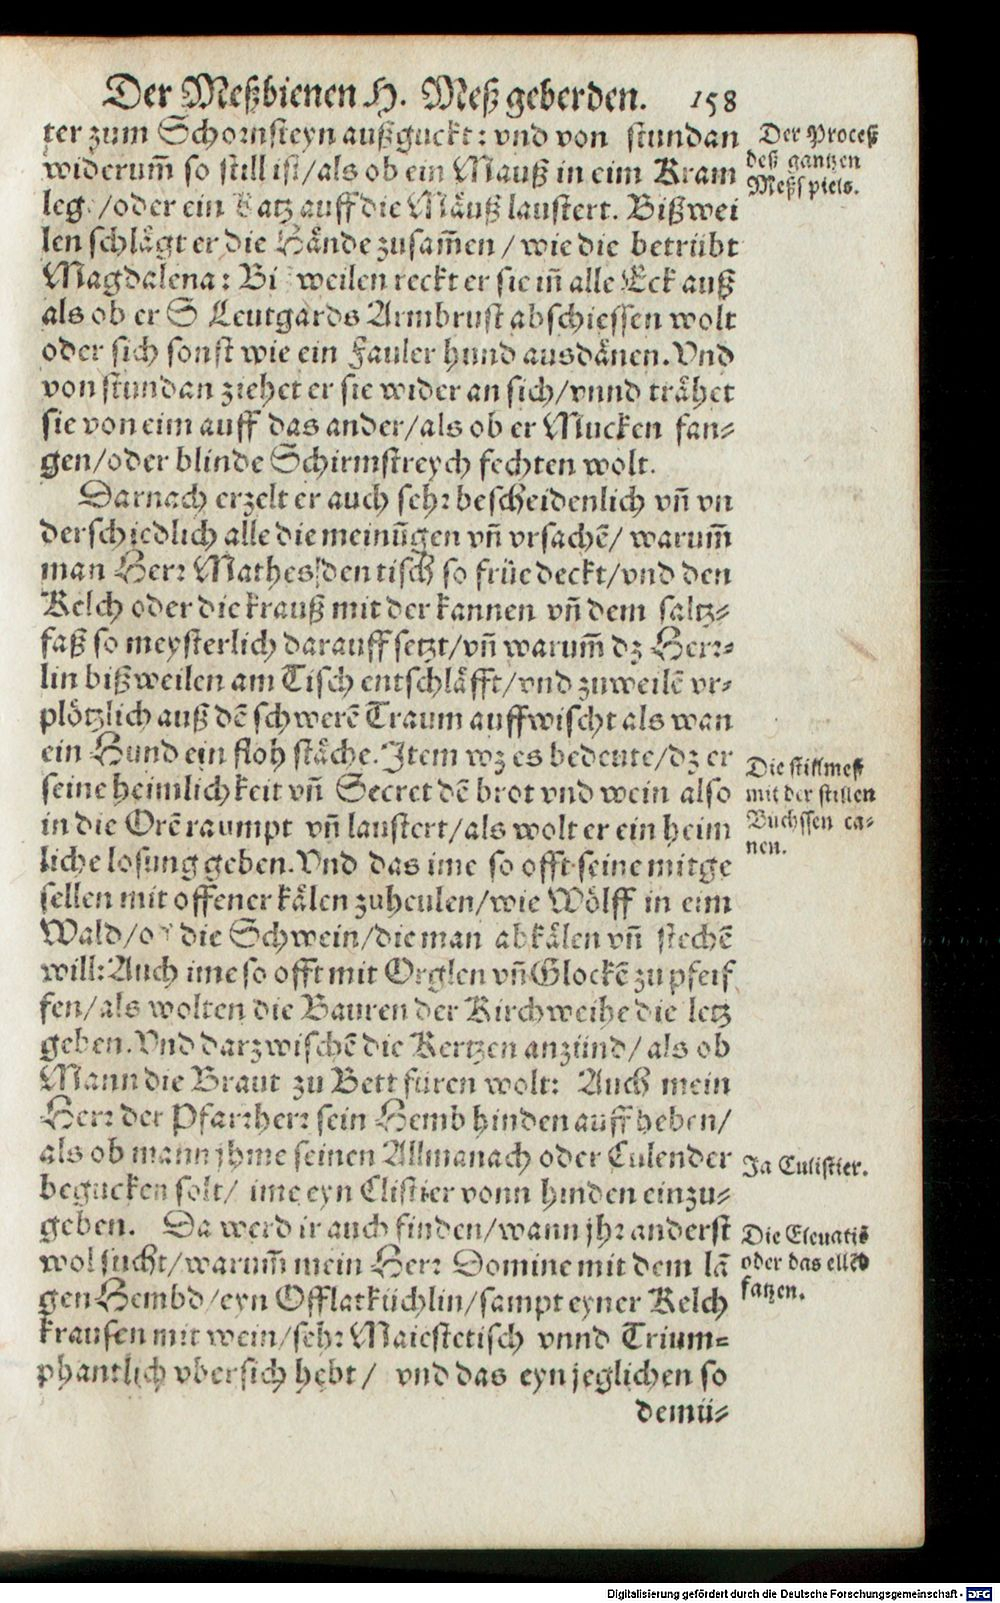 Der Meßbienen H. Meß geberden. 158
ter zum Schornsteyn außguckt: vnd von stundan
widerum̃ so still ist/als ob ein Mauß in eim Kram
leg/oder ein Katz auff die Mäuß laustert. Bißwei
len schlägt er die Hände zusam̃en/wie die betrübt
Magdalena: Bi weilen reckt er sie in̄ alle Eck auß
als ob er S Leutgards Armbrust abschiessen wolt
oder sich sonst wie ein Fauler hund ausdänen. Vnd
von stundan ziehet er sie wider an sich/vnnd trähet
sie von eim auff das ander/als ob er Mucken fan⸗
gen/oder blinde Schirmstreych fechten wolt.
Darnach erzelt er auch sehr bescheidenlich vn̄ vn
derschiedlich alle die meinūgen vn̄ vrsachē/ warum̃
man Herr Mathes den tisch so früe deckt/vnd den
Kelch oder die krauß mit der kannen vn̄ dem saltz⸗
faß so meysterlich darauff setzt/vn̄ warum̃ dz Herr⸗
lin bißweilen am Tisch entschläfft/vnd zuweilē vr⸗
plötzlich auß dē schwerē Traum auffwischt als wan
ein Hund ein floh stäche. Item wz es bedeute/dz er
seine heimlichkeit vn̄ Secret dē brot vnd wein also
in die Orē raumpt vn̄ laustert/als wolt er ein heim
liche losung geben. Vnd das ime so offt seine mitge
sellen mit offener kälen zuheulen/wie Wölff in eim
Wald/od die Schwein/die man abkälen vn̄ stechē
will: Auch ime so offt mit Orglen vn̄ Glockē zu pfeif
fen/als wolten die Bauren der Kirchweihe die letz
geben. Vnd darzwischē die Kertzen anzünd/als ob
Mann die Braut zu Bett füren wolt: Auch mein
Herr der Pfarrherr sein Hemb hinden auff heben/
als ob mann jhme seinen Allmanach oder Culender
begucken solt/ ime eyn Clistier vonn hinden einzu⸗
geben. Da werd ir auch finden/wann jhr anderst
wol sucht/warum̃ mein Herr Domine mit dem lā
gen Hembd/eyn Offlatküchlin/sampt eyner Kelch
krausen mit wein/sehr Maiestetisch vnnd Trium⸗
phantlich vbersich hebt/ vnd das eyn jeglichen so
demü⸗
Der Proceß
deß gantzen
Meßspiels.
Die stillmeß
mit der stillen
Büchssen ca⸗
nen.
Ja Culistier.
Die Eleuatiō
oder das ellēd
fatzen.
Digitalisierung gefördert durch die Deutsche Forschungsgemeinschaft - DFG